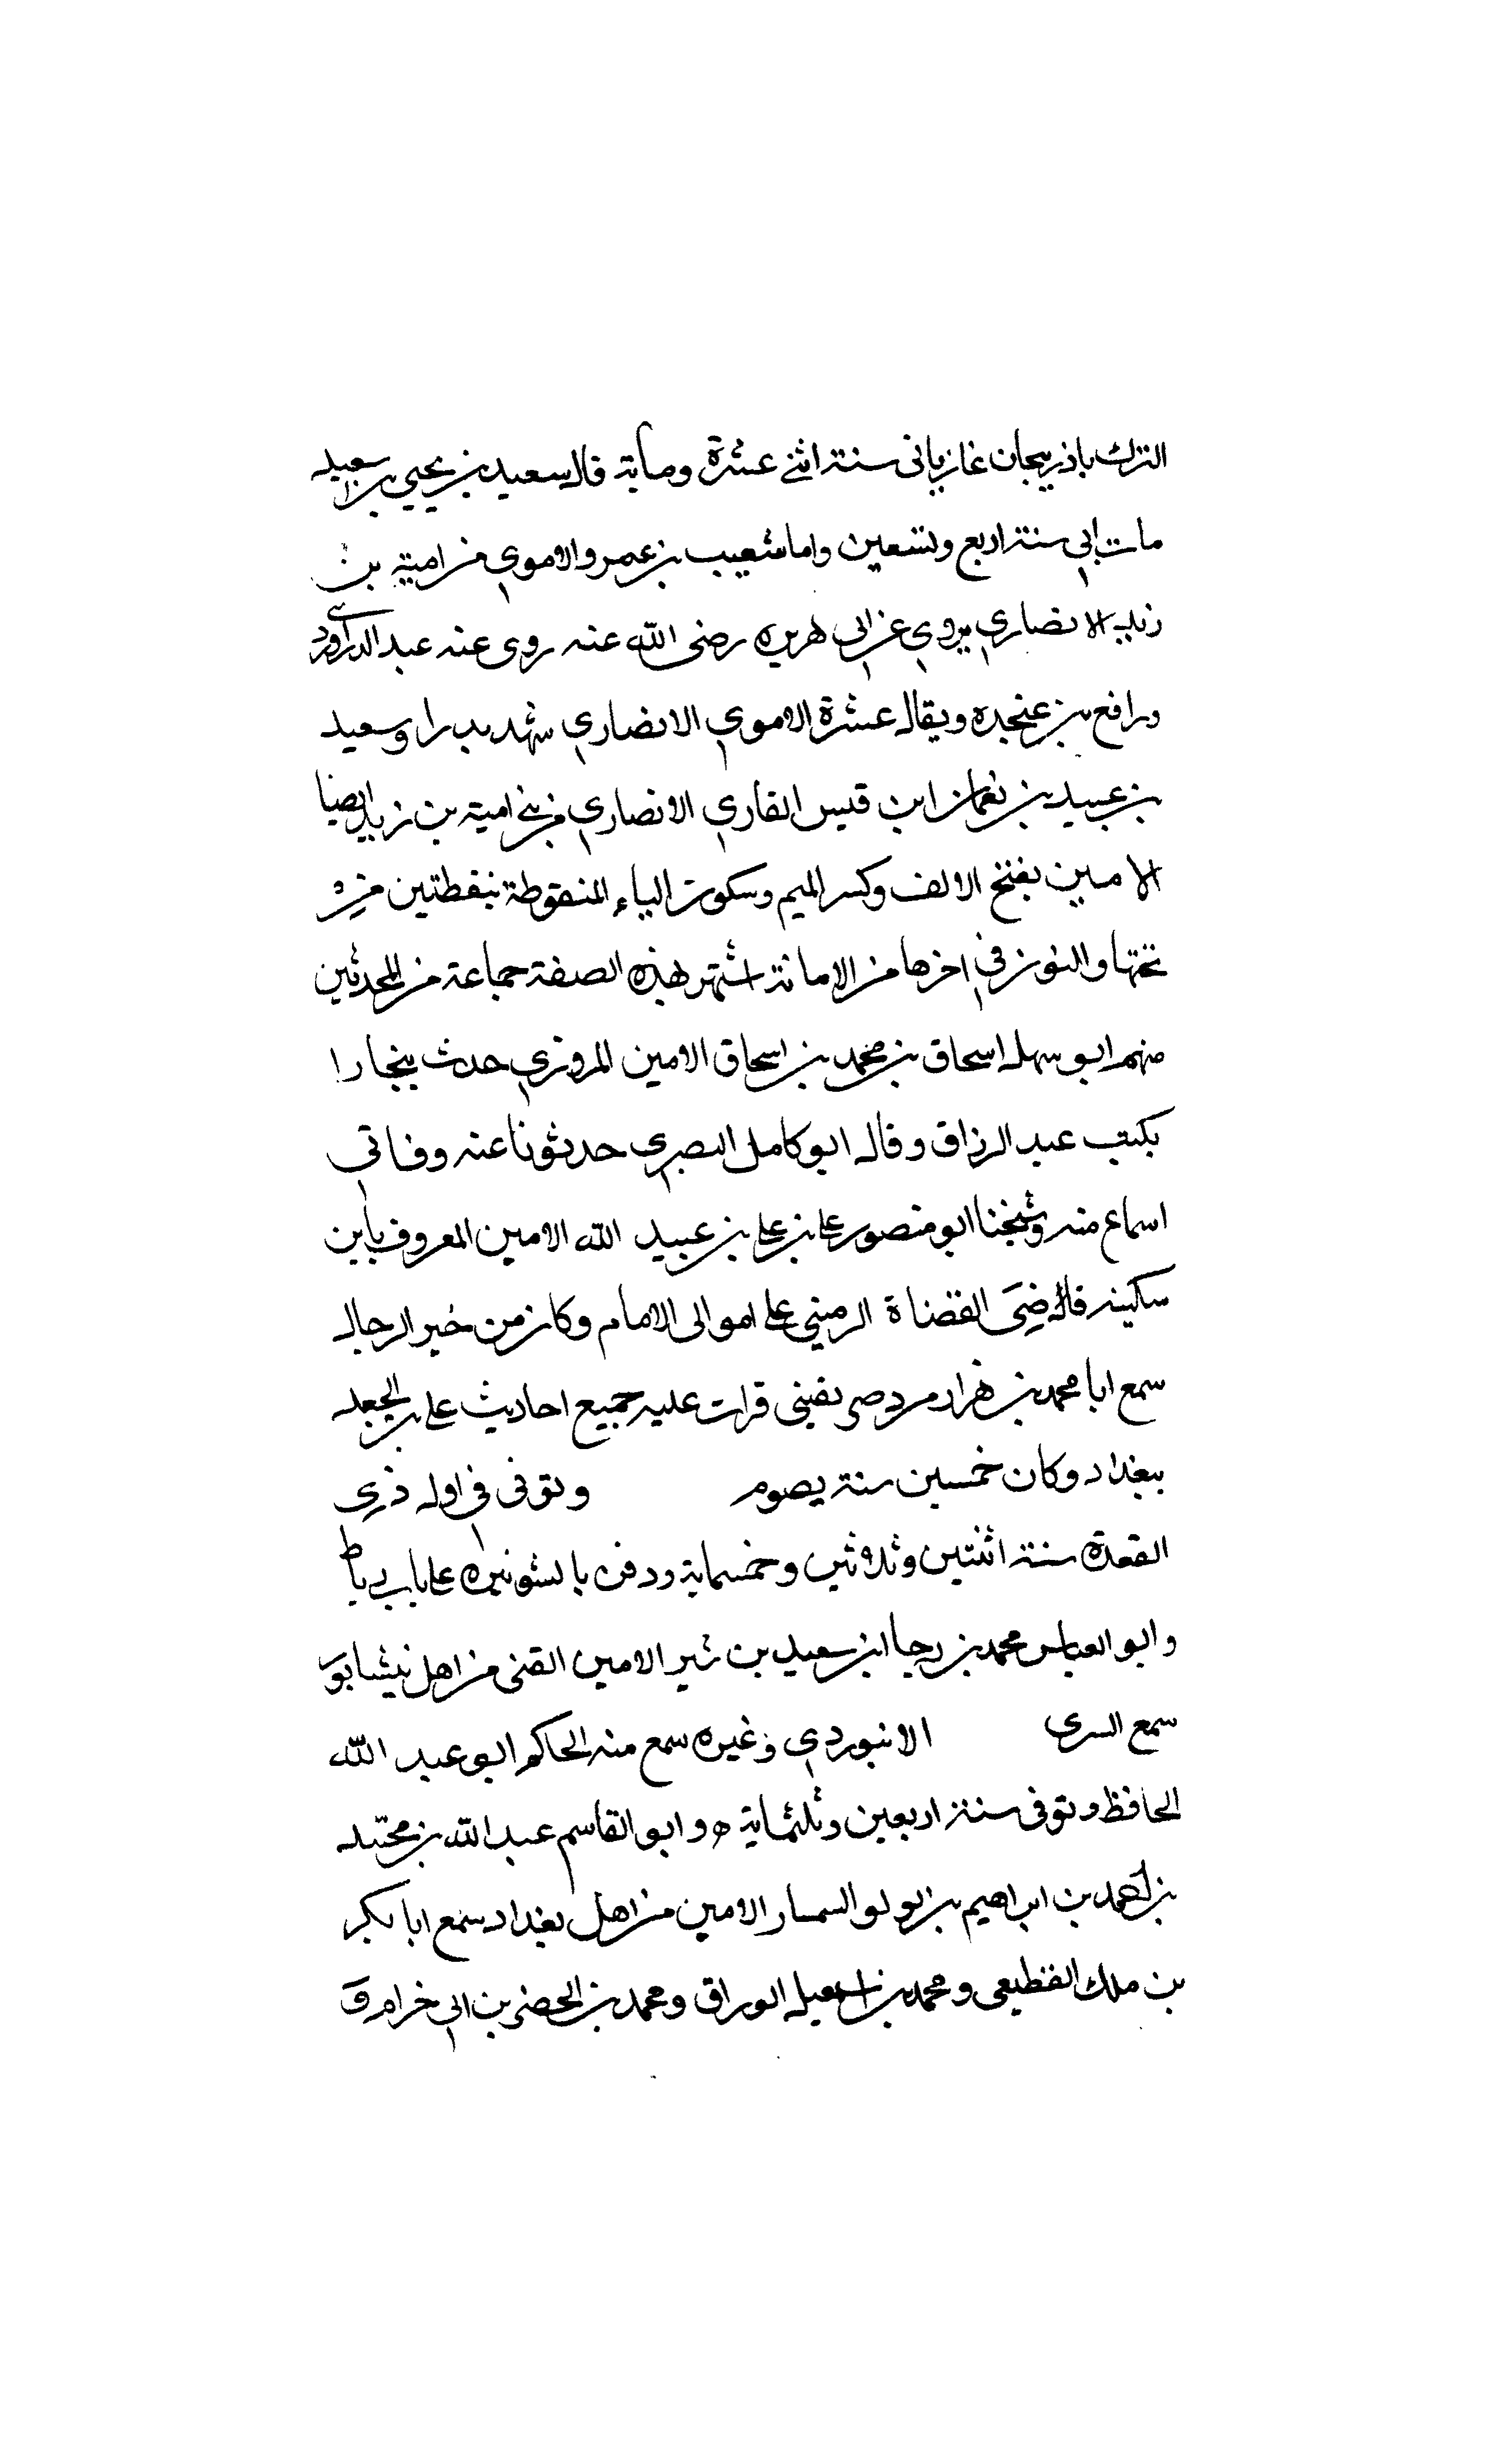 الترك باذربيجان غازيا في سنة اثني عشرة ومأية قال سعيد بن يحيي بن سعيد
مات ابي سنة اربع وتسعين واما شعيب بن عمرو الاموي من امية بن
زيد الانصاري يروي عن ابي هريره رضى الله عنه روى عنه عبد الدراوردي
ورافع بن عنجده ويقال عشرة الاموي الانصاري شهد بدرا وسعيد
بن عبيد بن نعمان ابن قيس القاري الانصاري من بني امية بن زيد ايضا
الامين بفتح الالف وكسر الميم وسكون الياء المنقوطة بنقطتين من
تحتها والنون في اخرها من الامانة اشتهر بهذه الصفة جماعة من المحدثين
منهم ابو سهل اسحاق بن محمد بن اسحاق الامين المروزي حدث ببخارا
بكتب عبد الرزاق وقال ابو كامل البصري حدثونا عنه وفاتي
اسماع منه وشيخنا ابو منصور علي بن علي بن عبيد الله الامين المعروف بابن
سكينه قاضي القضاة الرمني على اموالى الامام وكان من خير الرجال
سمع ابا محمد بن هزارمرد صريفيني قرات عليه جميع احاديث علي بن الجعد
ببغداد وكان خمسين سنة يصوم وتوفى في اول ذي
القعدة سنة اثنتين وثلاثين وخمسماية ودفن بالشونيزه على باب
وابو العباس محمد بن رجا ابن سعيد بن الامين القني من اهل نيشابور
سمع السرى الانبوردي وغيره سمع منه الحاكم ابو عبد الله
الحافظ وتوفى سنة اربعين وثلثماية ه وابو القاسم عبد الله بن محمد
بن احمد بن ابراهيم بن لولو السمسار الامين من اهل بغداد سمع ابا بكر
بن ملك القطيعى ومحمد بن اسمعيل الوراق ومحمد بن الخضر بن ابي خرام